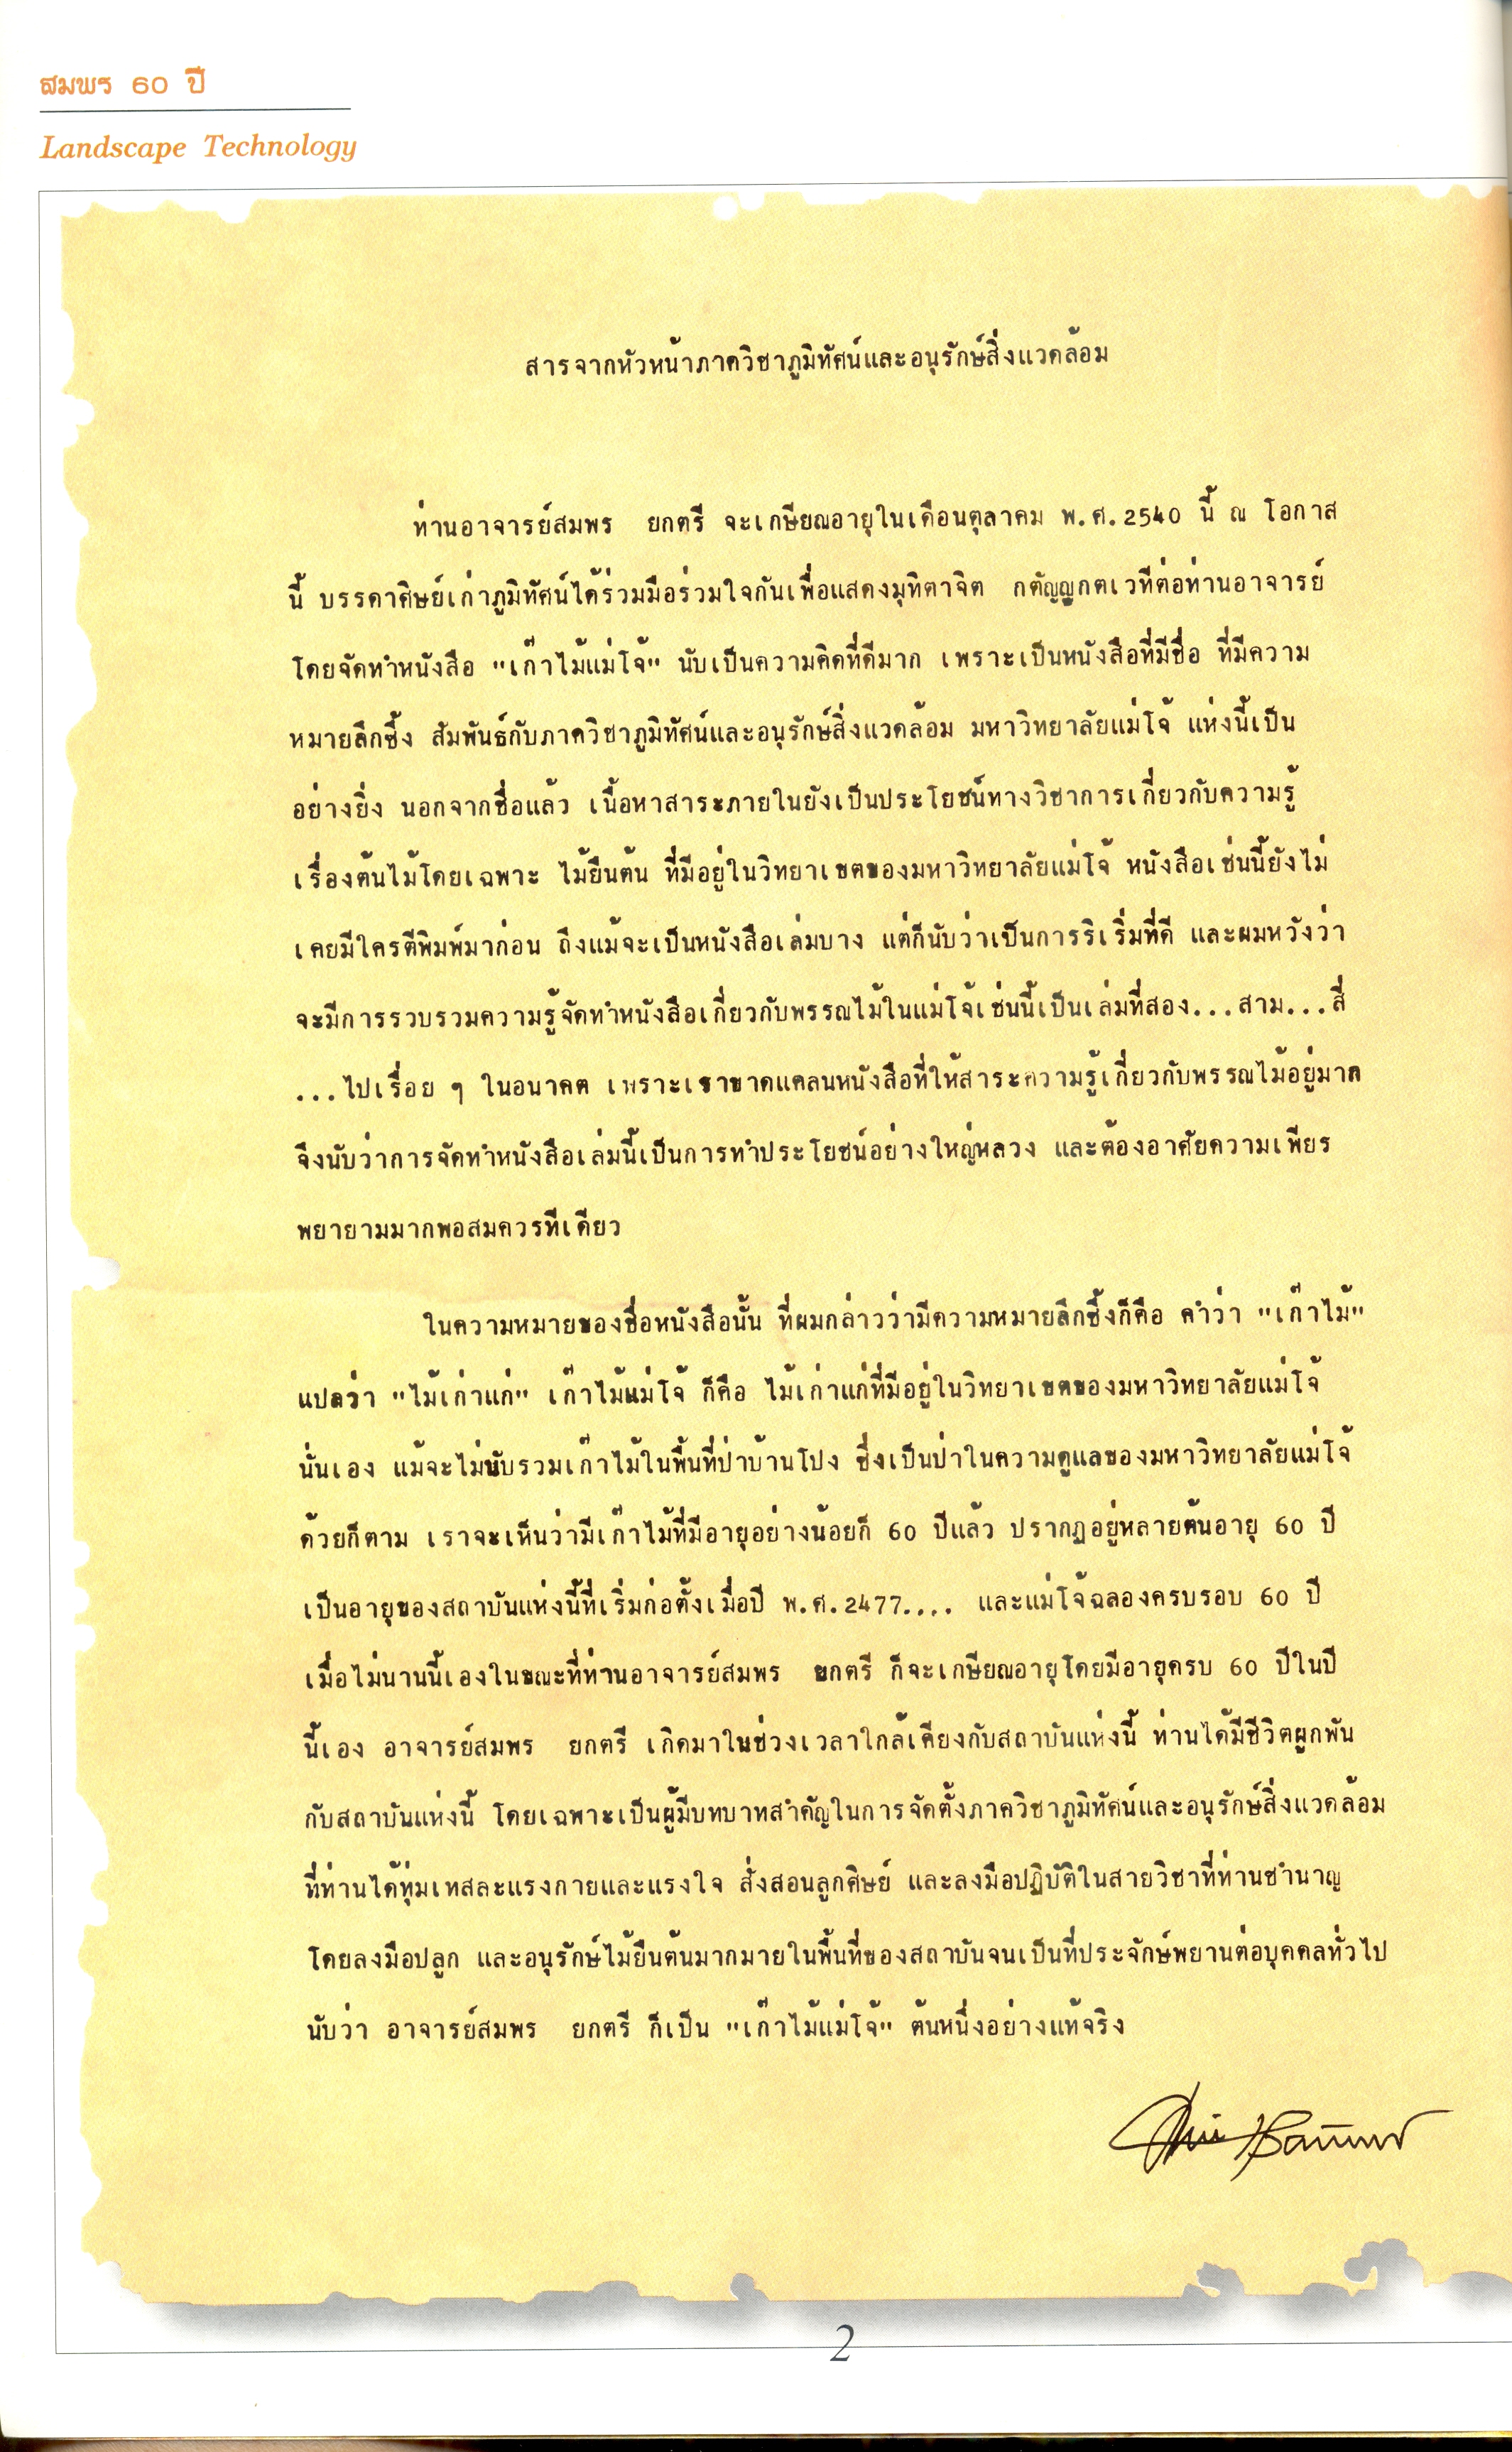 สมพร 60 ปี
Landscape Technology
สารจากหัวหน้าภาควิชาภูมิทัศน์และอนุรักษ์สิ่งแวดล้อม
ท่านอาจารย์สมพร ยกตรี จะเกษียณอายุในเดือนตุลาคม พ.ศ.2540 นี้ ณ โอกาส
นี้ บรรดาศิษย์เก่าภูมิทัศน์ได้ร่วมมือร่วมใจกันเพื่อแสดงมุทิตาจิต กตัญญูกตเวทีต่อท่านอาจารย์
โดยจัดทำหนังสือ "เก๊าไม้แม่โจ้" นับเป็นความคิดที่ดีมาก เพราะเป็นหนังสือที่มีชื่อ ที่มีความ
หมายลึกซึ้ง สัมพันธ์กับภาควิชาภูมิทัศน์และอนุรักษ์สิ่งแวดล้อม มหาวิทยาลัยแม่โจ้ แห่งนี้เป็น
อย่างยิ่ง นอกจากชื่อแล้ว เนื้อหาสาระภายในยังเป็นประโยชน์ทางวิชาการเกี่ยวกับความรู้
เรื่องต้นไม้โดยเฉพาะ ไม้ยืนต้น ที่มีอยู่ในวิทยาเขตของมหาวิทยาลัยแม่โจ้ หนังสือเช่นนี้ยังไม่
เคยมีใครตีพิมพ์มาก่อน ถึงแม้จะเป็นหนังสือเล่มบาง แต่ก็นับว่าเป็นการริเริ่มที่ดี และผมหวังว่า
จะมีการรวบรวมความรู้จัดทำหนังสือเกี่ยวกับพรรณไม้ในแม่โจ้เช่นนี้เป็นเล่มที่สอง...สาม...สี่
...ไปเรื่อย ๆ ในอนาคต เพราะเราขาดแคลนหนังสือที่ให้สาระความรู้เกี่ยวกับพรรณไม้อยู่มาก
จึงนับว่าการจัดทำหนังสือเล่มนี้เป็นการทำประโยชน์อย่างใหญ่หลวง และต้องอาศัยความเพียร
พยายามมากพอสมควรทีเดียว
ในความหมายของชื่อหนังสือนั้น ที่ผมกล่าวว่ามีความหมายลึกซึ้งก็คือ คำว่า "เก๊าไม้"
แปลว่า "ไม้เก่าแก่" เก๊าไม้แม่โจ้ ก็คือ ไม้เก่าแก่ที่มีอยู่ในวิทยาเขตของมหาวิทยาลัยแม่โจ้
นั่นเอง แม้จะไม่นับรวมเก๊าไม้ในพื้นที่ป่าบ้านโปง ซึ่งเป็นป่าในความดูแลของมหาวิทยาลัยแม่โจ้
ด้วยก็ตาม เราจะเห็นว่ามีเก๊าไม้ที่มีอายุอย่างน้อยก็ 60 ปีแล้ว ปรากฏอยู่หลายต้นอายุ 60 ปี
เป็นอายุของสถาบันแห่งนี้ที่เริ่มก่อตั้งเมื่อปี พ.ศ.2477.... และแม่โจ้ฉลองครบรอบ 60 ปี
เมื่อไม่นานนี้เองในขณะที่ท่านอาจารย์สมพร ยกตรี ก็จะเกษียณอายุโดยมีอายุครบ 60 ปีในปี
นี้เอง อาจารย์สมพร ยกตรี เกิดมาในช่วงเวลาใกล้เคียงกับสถาบันแห่งนี้ ท่านได้มีชีวิตผูกพัน
กับสถาบันแห่งนี้ โดยเฉพาะเป็นผู้มีบทบาทสำคัญในการจัดตั้งภาควิชาภูมิทัศน์และอนุรักษ์สิ่งแวดล้อม
ที่ท่านได้ทุ่มเทสละแรงกายและแรงใจ สั่งสอนลูกศิษย์ และลงมือปฏิบัติในสายวิชาที่ท่านชำนาญ
โดยลงมือปลูก และอนุรักษ์ไม้ยืนต้นมากมายในพื้นที่ของสถาบันจนเป็นที่ประจักษ์พยานต่อบุคคลทั่วไป
นับว่า อาจารย์สมพร ยกตรี ก็เป็น "เก๊าไม้แม่โจ้" ต้นหนึ่งอย่างแท้จริง
2